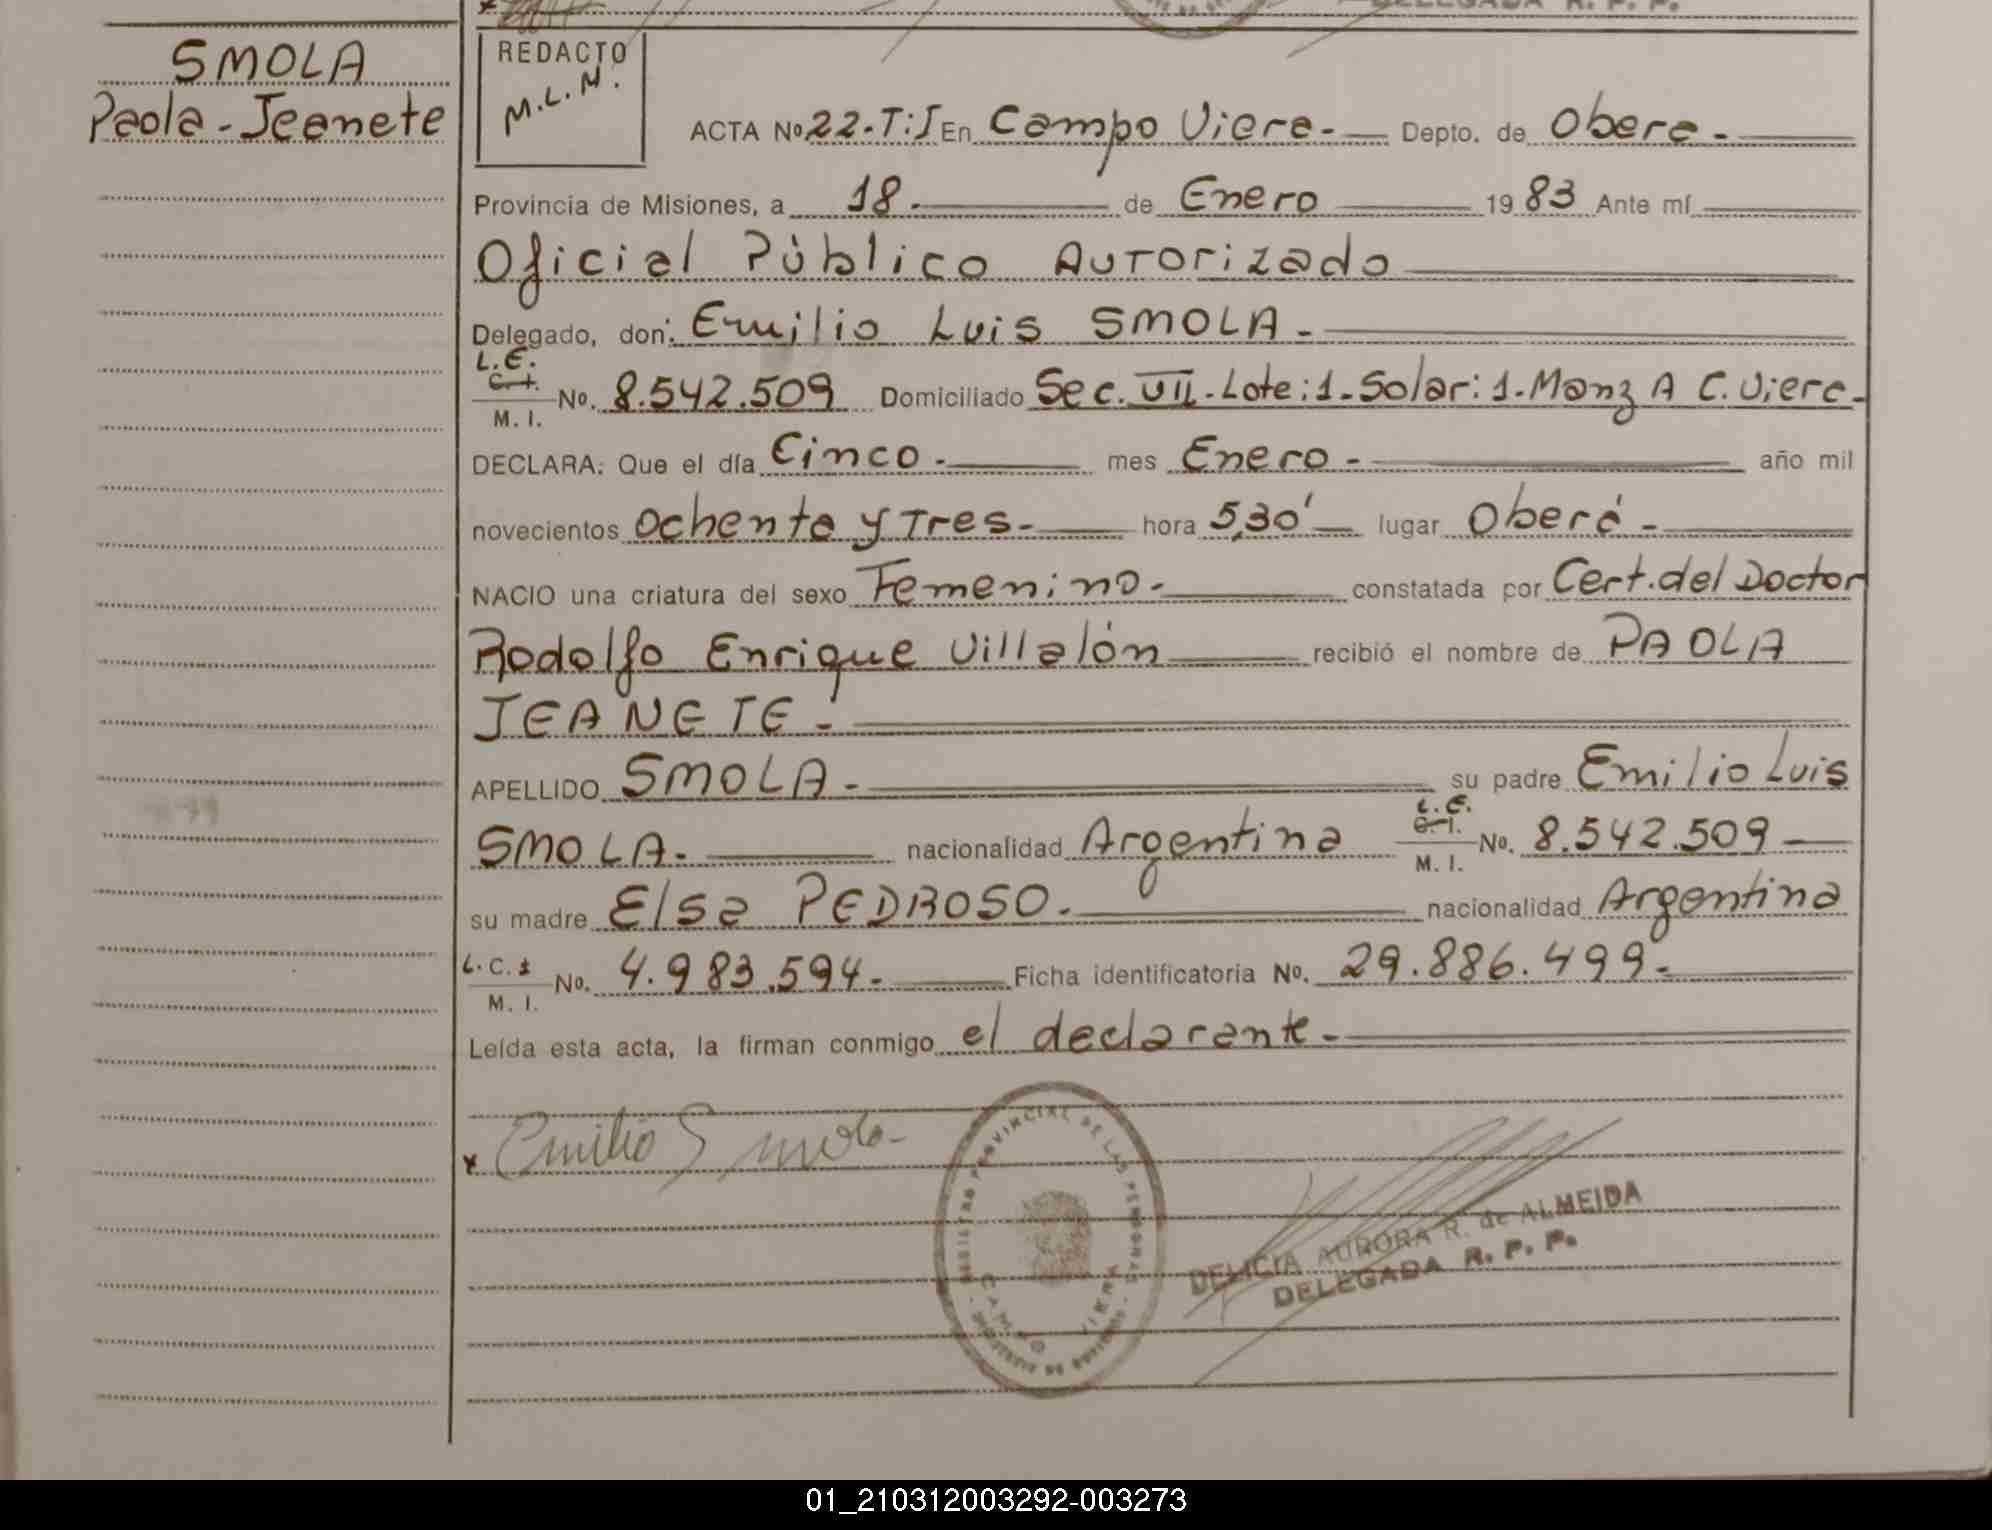 DELEGADA R. P. P.
SMOLA
Paola - Jeanete
REDACTO
M.L.M.
ACTA Nº 22-T:I En Campo Viera.- Depto. de Obera.-
Provincia de Misiones, a 18.- de Enero 1983 Ante mí
Oficial Público Autorizado
Delegado, don: Emilio Luis SMOLA.-
L.E.
C. I.
M. I. No. 8.542.509 Domiciliado Sec. VII.-Lote:1.-Solar:1.-Manz A C. Viera.-
DECLARA: Que el día Cinco.- mes Enero.- año mil
novecientos ochenta y Tres.- hora 5,30' lugar Oberá.-
NACIO una criatura del sexo Femenino.- constatada por Cert. del Doctor
Rodolfo Enrique Villalón recibió el nombre de PAOLA
JEANETE.-
APELLIDO SMOLA.- su padre Emilio Luis
SMOLA.- nacionalidad Argentina L.E. C. I. M. I. No. 8.542.509
su madre Elsa PEDROSO.- nacionalidad Argentina
L.C. I. M. I. No. 4.983.594.- Ficha identificatoria No. 29.886.499.-
Leída esta acta, la firman conmigo el declarante.-
x Emilio Smola
REGISTRO PROVINCIAL DE LAS PERSONAS
CAMPO VIERA
DELICIA AURORA R. de ALMEIDA
DELEGADA R. P. P.
01_210312003292-003273